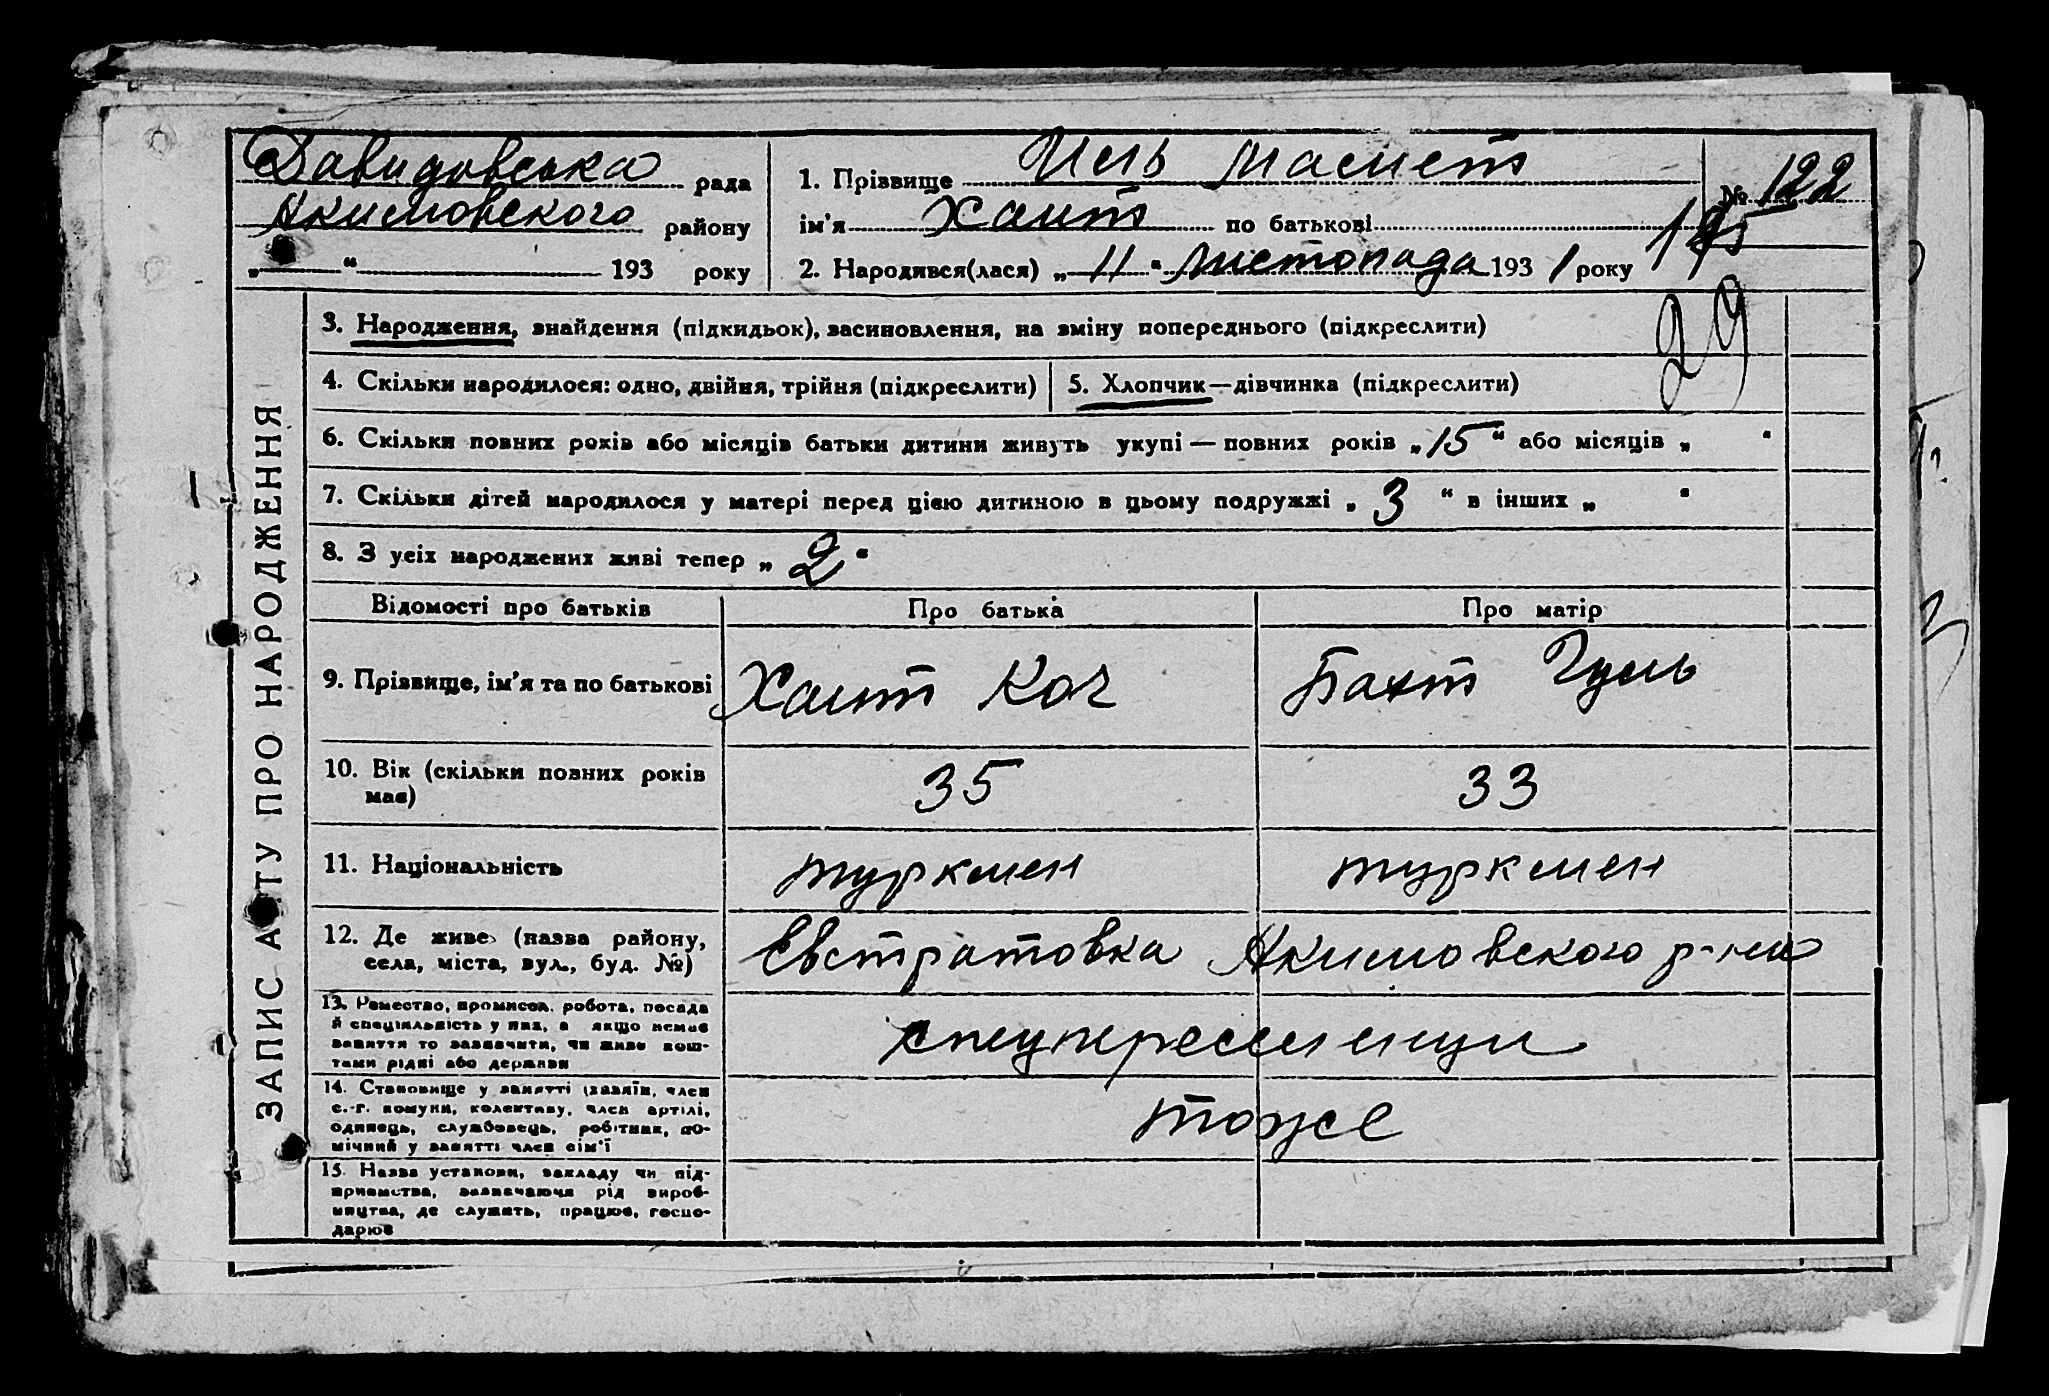 Давидовська рада
Акимовского району
„ “ 193 року
1. Прізвище Иль Мамет
№ 122
ім'я Хаит по батькові
2. Народився(лася) „ 11 “ листопада 1931 року
29
ЗАПИС АКТУ ПРО НАРОДЖЕННЯ
3. Народження, знайдення (підкидьок), засиновлення, на зміну попереднього (підкреслити)
4. Скільки народилося: одно, двійня, трійня (підкреслити)
5. Хлопчик—дівчинка (підкреслити)
6. Скільки повних років або місяців батьки дитини живуть укупі — повних років „ 15 “ або місяців „ “
7. Скільки дітей народилося у матері перед цією дитиною в цьому подружжі „ 3 “ в інших „ “
8. З усіх народжених живі тепер „ 2 “
Відомості про батьків
Про батька
Про матір
9. Прізвище, ім'я та по батькові
Хаит Коч
Бахт Гуль
10. Вік (скільки повних років
має)
35
33
11. Національність
туркмен
туркмен
12. Де живе (назва району,
села, міста, вул., буд. №)
Евстратовка Акимовского р-на
13. Ремество, промисел, робота, посада
й спеціяльність у них, а якщо немає
заняття то зазначити, чи живе кош-
тами рідні або держави
спецпереселенци
14. Становище у занятті (хазяїн, член
с.-г. комуни, колективу, член артілі,
одинець, службовець, робітник, по-
мічний у занятті член сім'ї
тоже
15. Назва установи, закладу чи під-
приємства, зазначаючи рід вироб-
ництва, де служить, працює, госпо-
дарює